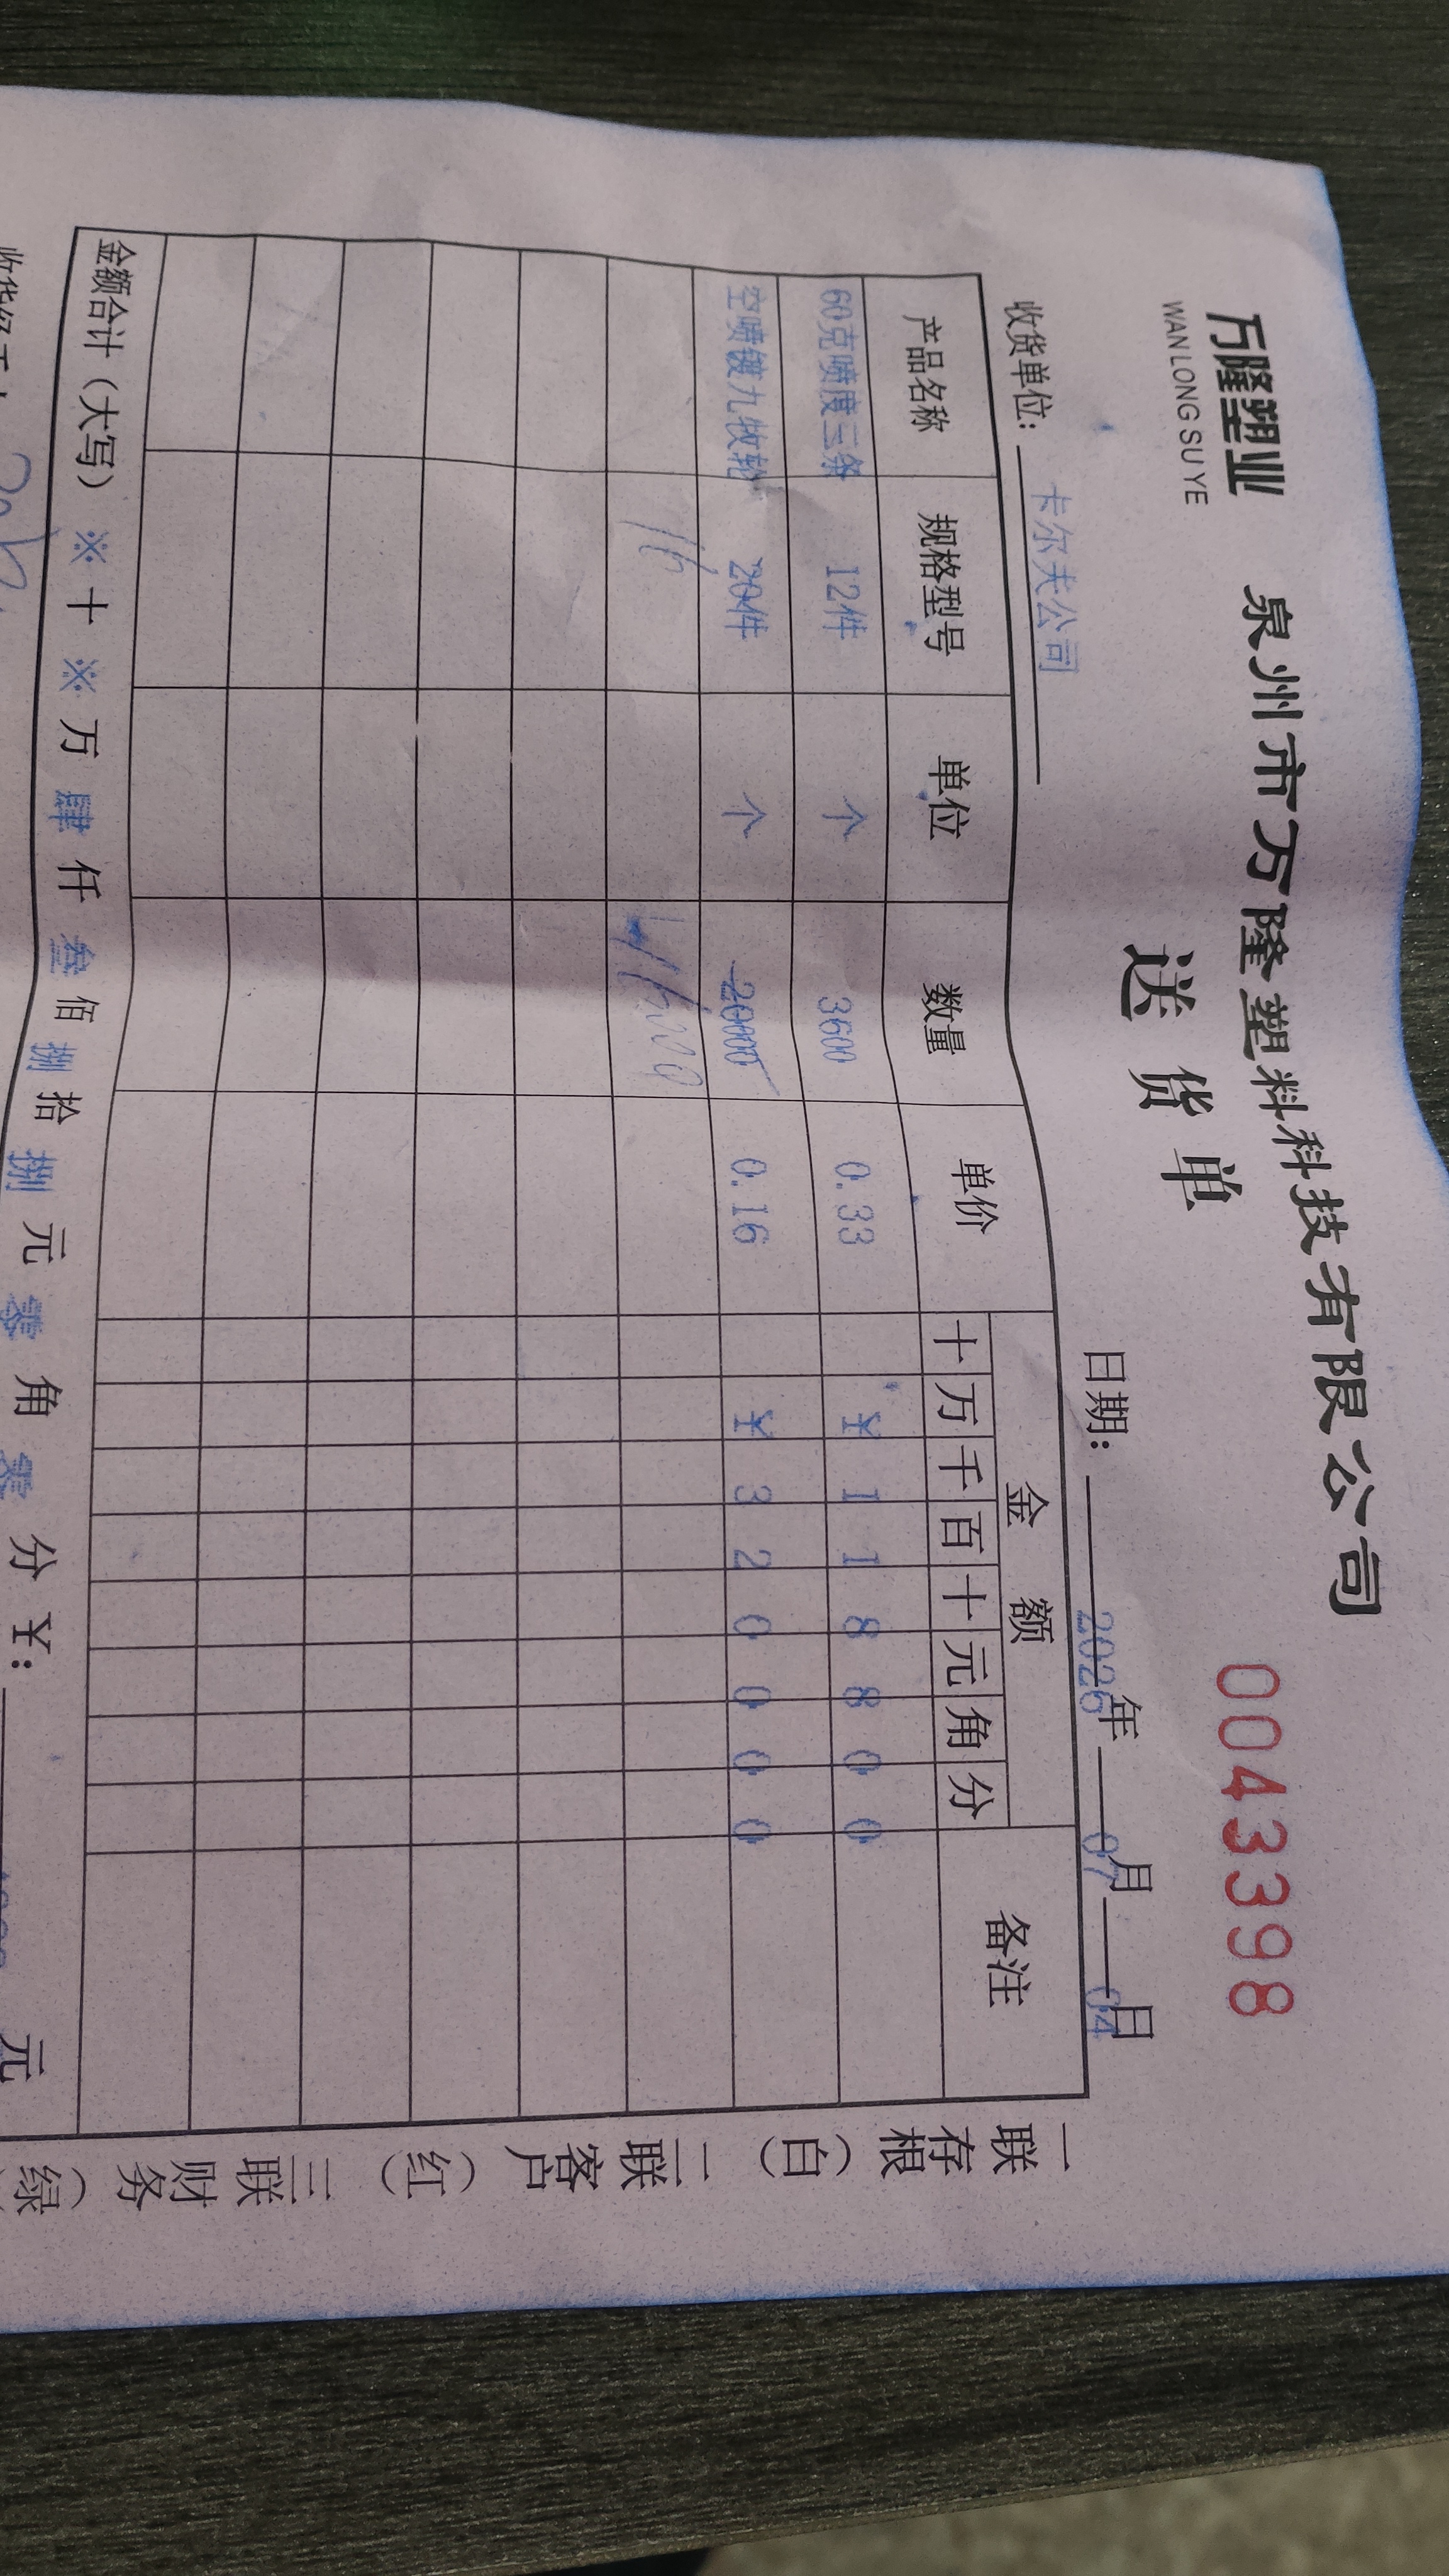 万隆塑业
WAN LONG SU YE
泉州市万隆塑料科技有限公司
0043398
送货单
收货单位: 卡尔夫公司
日期: 2026年07月04日
产品名称 规格型号 单位 数量 单价 金额 备注
十 万 千 百 十 元 角 分
60克喷度三条 12件 个 3600 0.33 ¥ 1 1 8 8 0 0
空喷镀九牧轮 20件 个 20000 0.16 ¥ 3 2 0 0 0 0
16
金额合计（大写） ※ 十 ※ 万 肆 仟 叁 佰 捌 拾 捌 元 零 角 零 分 ¥: 元
一联存根（白） 二联客户（红） 三联财务（绿